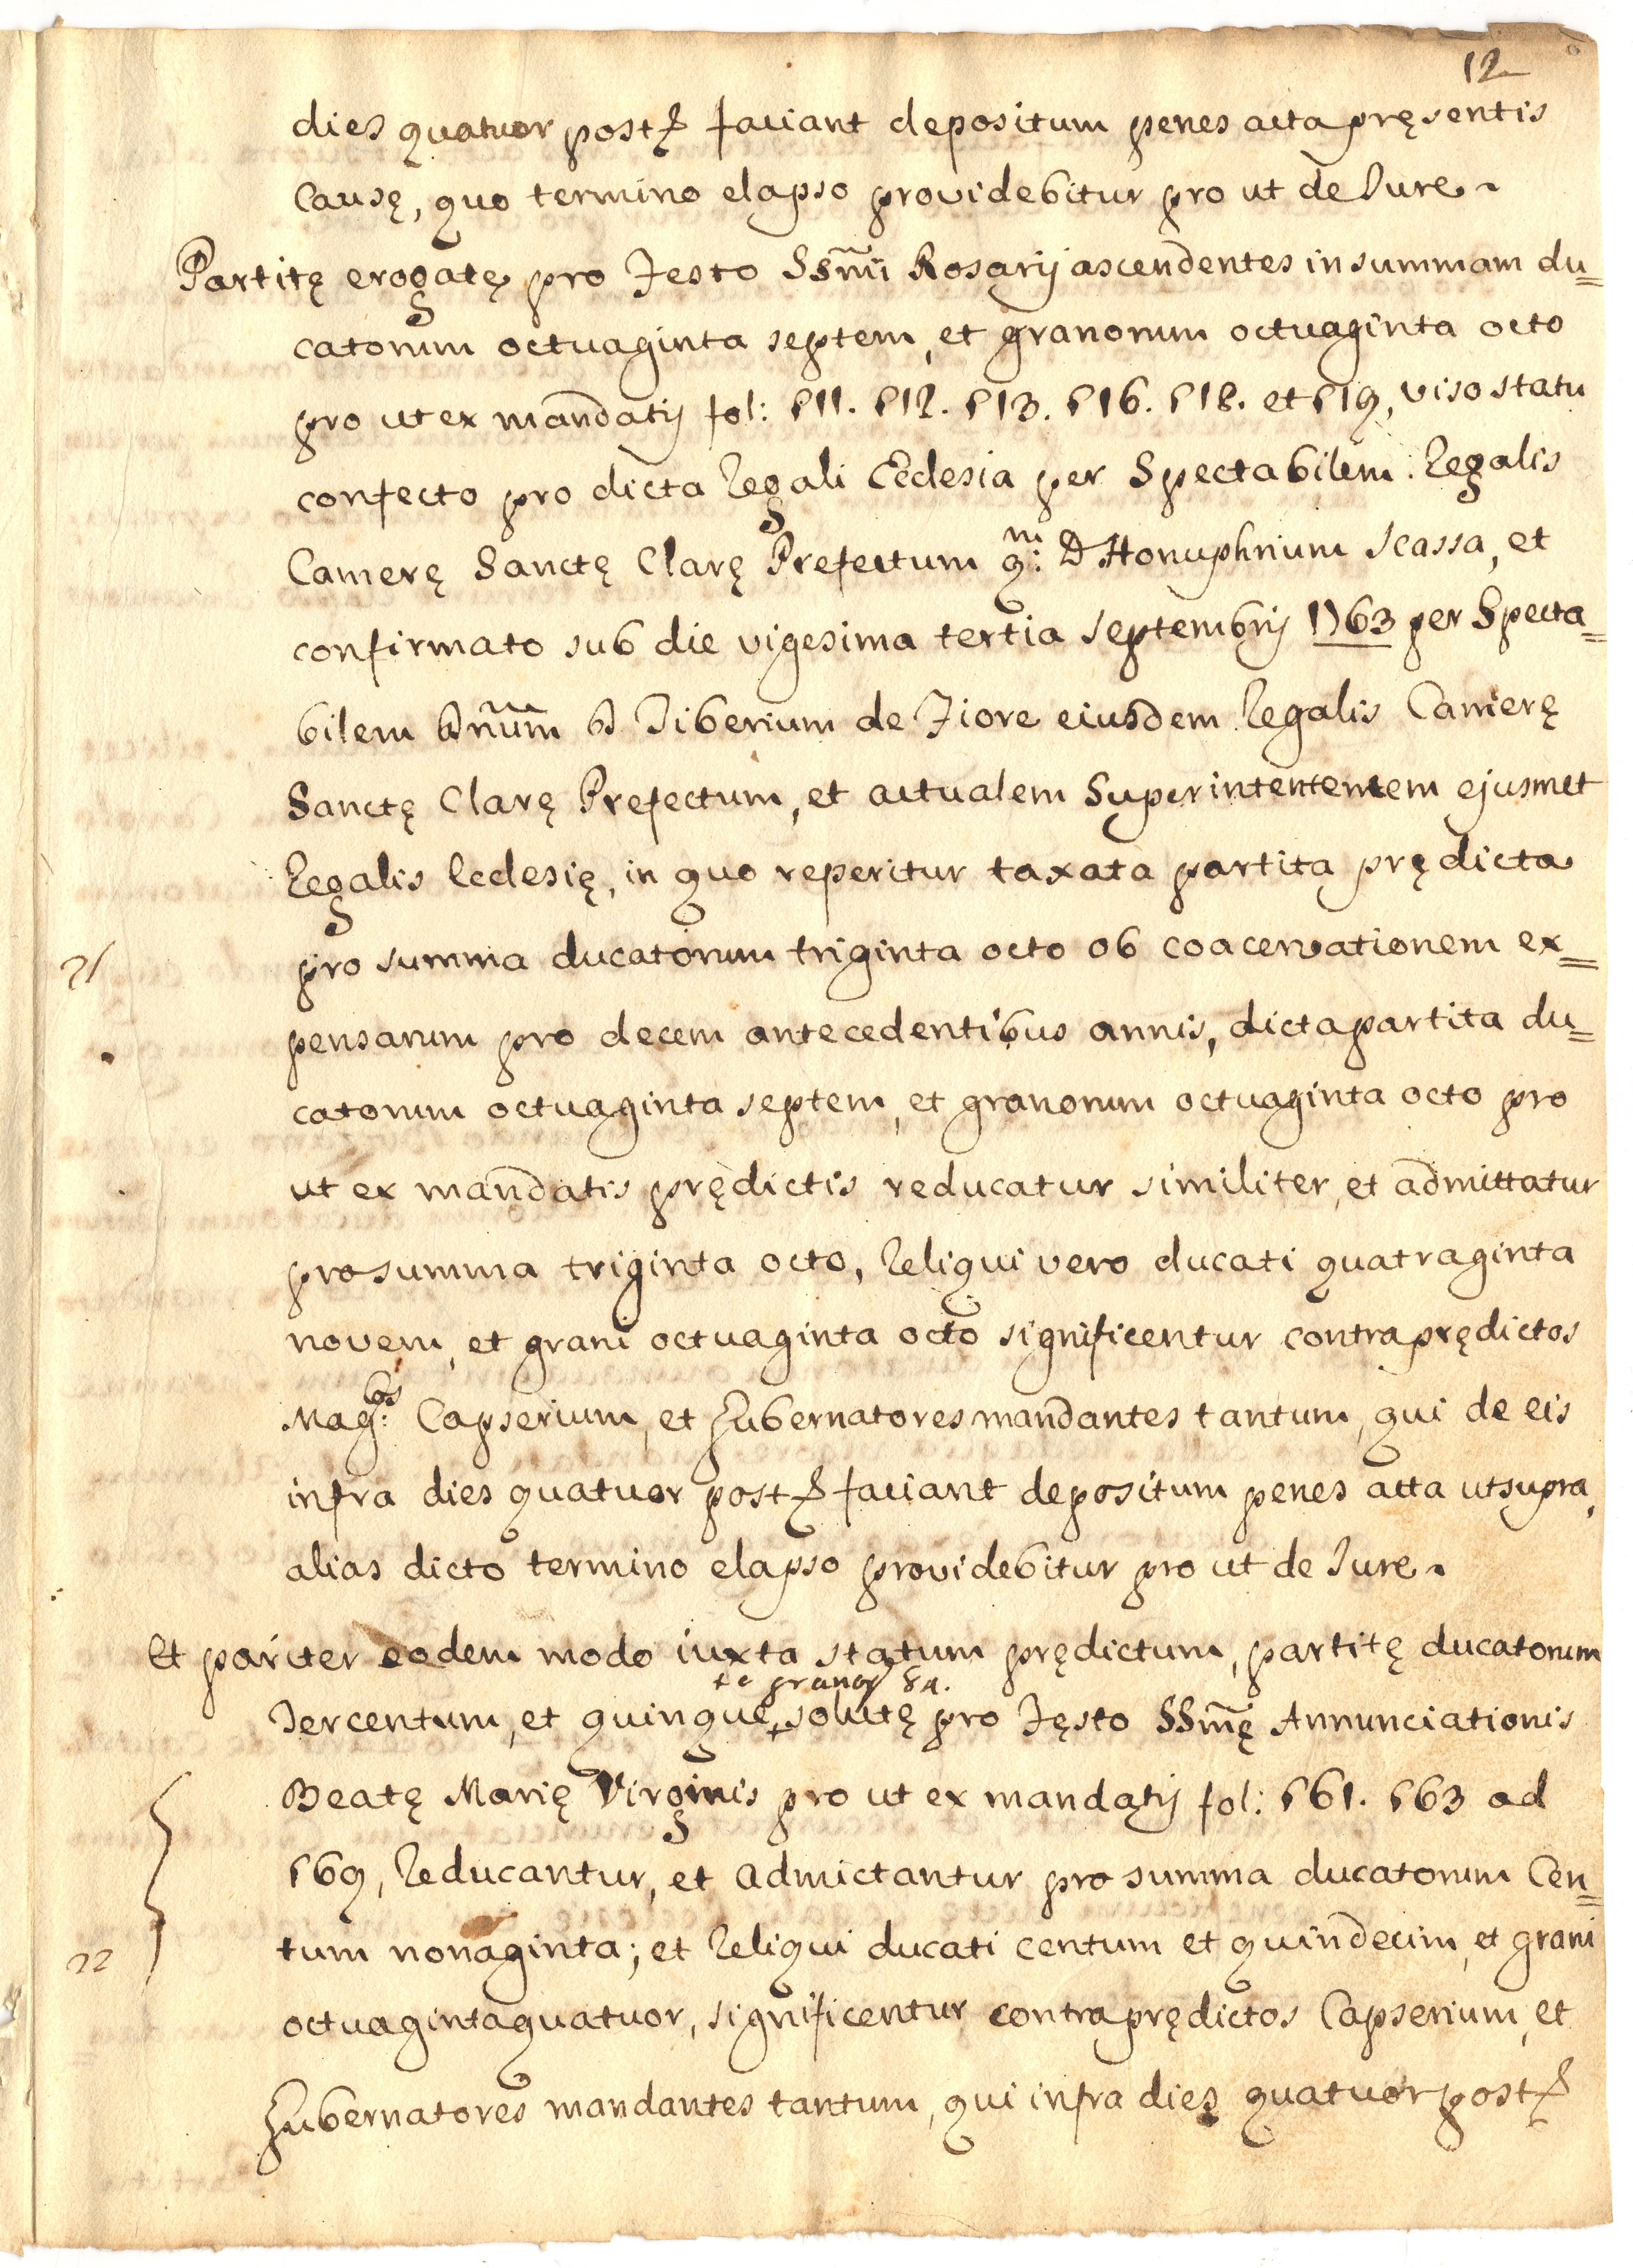 12
dies quatuor post &c faciant depositum penes acta pręsentis
Causę, quo termino elapso providebitur pro ut de Iure.
Partitę erogatę pro Festo SSm̃i Rosarij ascendentes in summam du=
catorum octuaginta septem, et granorum octuaginta octo
pro ut ex mandatij fol: 511. 512. 513. 516. 518. et 519, viso statu
confecto pro dicta Regali Ecclesia per Spectabilem Regalis
Camerę Sanctę Clarę Prefectum q:m D Honuphrium Scassa, et
confirmato sub die vigesima tertia septembrij 1763 per Specta=
bilem Dñum D Tiberium de Fiore eiusdem Regalis Camerę
Sanctę Clarę Prefectum, et actualem Superintententem ejusmet
Regalis Ecclesię, in quo reperitur taxata partita prędicta
21 pro summa ducatorum triginta octo ob coacervationem ex=
pensarum pro decem antecedentibus annis, dicta partita du=
catorum octuaginta septem, et granorum octuaginta octo pro
ut ex mandatis prędictis reducatur similiter, et admittatur
pro summa triginta octo, Reliqui vero ducati quatraginta
novem, et grani octuaginta octo significentur contra prędictos
Mag:cos Capserium, et Gubernatores mandantes tantum, qui de eis
infra dies quatuor post &c faciant depositum penes acta ut supra,
alias dicto termino elapso providebitur pro ut de Iure.
Et pariter eodem modo iuxta statum prędictum, partitę ducatorum
et granor 84.
Tercentum, et quinque + solutę pro Fęsto SSm̃ę Annunciationis
Beatę Marię Virginis pro ut ex mandatij fol: 561. 563 ad
569, Reducantur, et admictantur pro summa ducatorum Cen=
22 tum nonaginta; et Reliqui ducati centum et quindecim, et grani
octuagintaquatuor, significentur contra prędictos Capserium, et
Gubernatores mandantes tantum, qui infra dies quatuor post &c